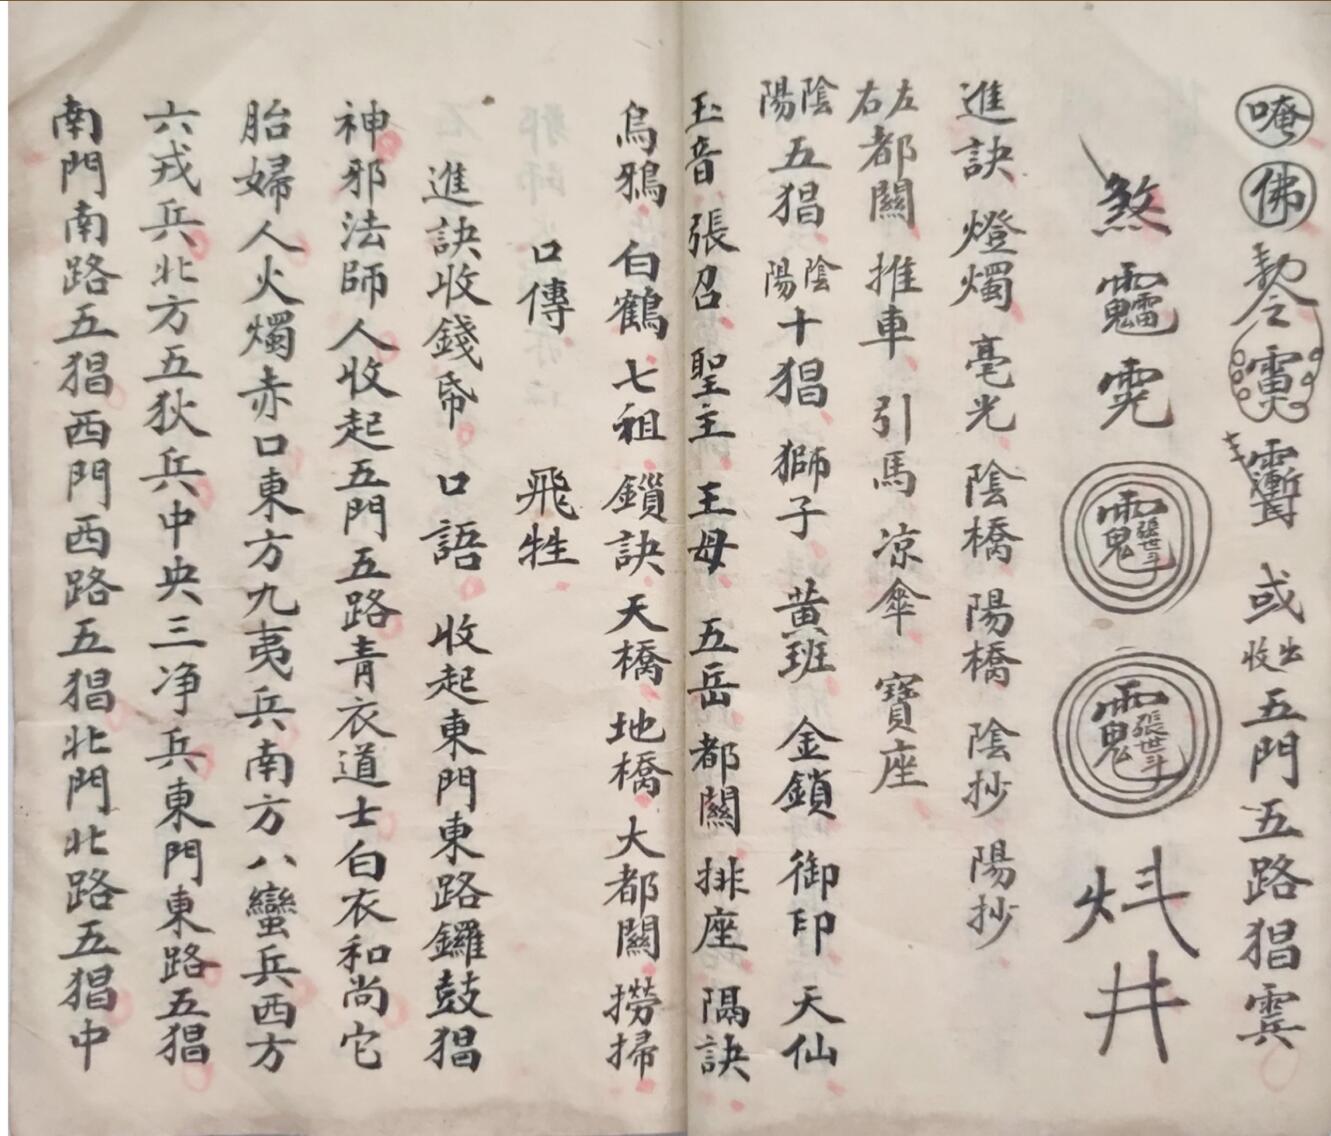 唵佛勅令 或出收五門五路猖雲
煞
張世斗 張世斗
進訣 燈燭 毫光 陰橋 陽橋 陰抄 陽抄
左右都關 推車 引馬 凉傘 寶座
陰陽五猖 陰陽十猖 獅子 黃班 金鎖 御印 天仙
玉音 張召 聖主 王母 五岳 都關 排座 隔訣
烏鴉 白鶴 七祖 鎖訣 天橋 地橋 大都關 撈掃
口傳 飛牲
進訣收錢帋 口語 收起東門東路鑼鼓猖
神邪法師人收起五門五路青衣道士白衣和尚它
胎婦人火燭赤口東方九夷兵南方八蠻兵西方
六戎兵北方五狄兵中央三净兵東門東路五猖
南門南路五猖西門西路五猖北門北路五猖中